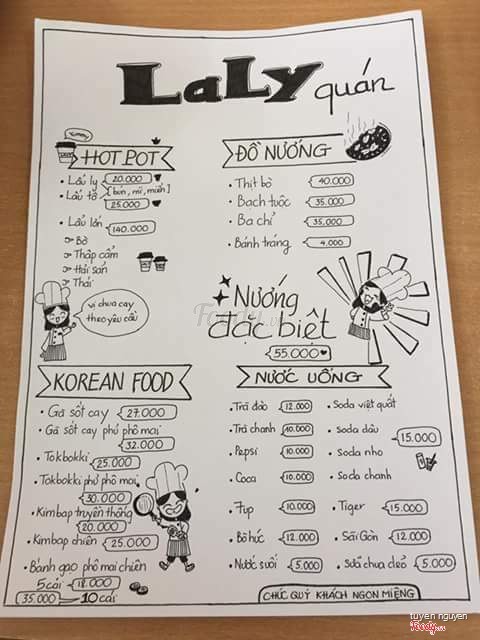 LaLy quán
Yummy
HOT POT
• Lẩu ly 20.000
[bún, mì, miến]
• Lẩu tô 25.000
• Lẩu lớn 140.000
Bò
Thập cẩm
Hải sản
Thái
Vị chua cay
theo yêu cầu
ĐỒ NƯỚNG
• Thịt bò 40.000
• Bạch tuộc 35.000
• Ba chỉ 35.000
• Bánh tráng 4.000
Nướng
đặc biệt
55.000
KOREAN FOOD
• Gà sốt cay 27.000
• Gà sốt cay phủ phô mai
32.000
• Tokbokki 25.000
• Tokbokki phủ phô mai
30.000
• Kimbap truyền thống
20.000
• Kimbap chiên 25.000
• Bánh gạo phô mai chiên
5 cái 18.000
35.000 10 cái
NƯỚC UỐNG
• Trà đào 12.000
• Trà chanh 10.000
• Pepsi 10.000
• Coca 10.000
• 7up 10.000
• Bò húc 12.000
• Nước suối 5.000
• Soda việt quất
• Soda dâu
15.000
• Soda nho
• Soda chanh
• Tiger 15.000
• Sài Gòn 12.000
• Sữa chua dẻo 5.000
CHÚC QUÝ KHÁCH NGON MIỆNG
Foody.vn
tuyen nguyen
Foody.vn